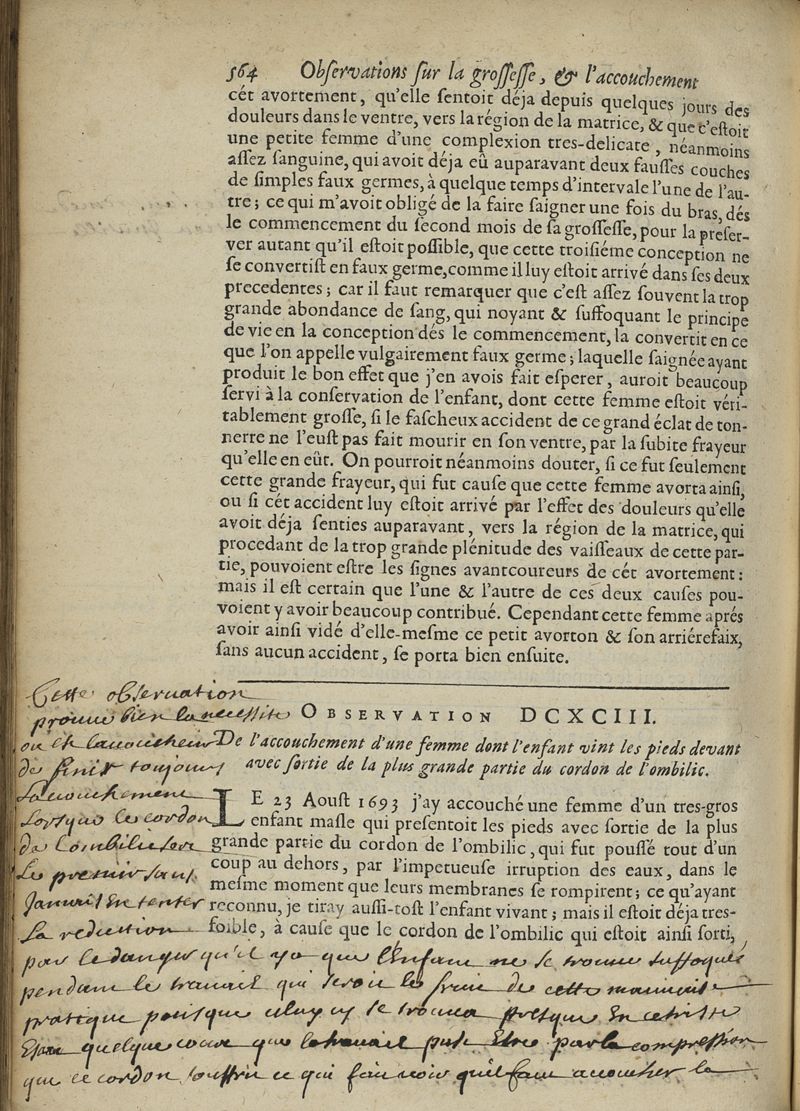 564 Obſervations ſur la groſſeſſe, & l'accouchement
cét avortement, qu'elle ſentoit déja depuis quelques jours des
douleurs dans le ventre, vers la région de la matrice, & que c'eſtoit
une petite femme d'une complexion tres-delicate, néanmoins
aſſez ſanguine, qui avoit déja eû auparavant deux fauſſes couches
de ſimples faux germes, à quelque temps d'intervale l'une de l'au-
tre; ce qui m'avoit obligé de la faire ſaigner une fois du bras, dés
le commencement du ſecond mois de ſa groſſeſſe, pour la préſer-
ver autant qu'il eſtoit poſſible, que cette troiſiéme conception ne
ſe convertiſt en faux germe, comme il luy eſtoit arrivé dans ſes deux
precedentes; car il faut remarquer que c'eſt aſſez ſouvent la trop
grande abondance de ſang, qui noyant & ſuffoquant le principe
de vie en la conception dés le commencement, la convertit en ce
que l'on appelle vulgairement faux germe; laquelle ſaignée ayant
produit le bon effet que j'en avois fait eſperer, auroit beaucoup
ſervi à la conſervation de l'enfant, dont cette femme eſtoit véri-
tablement groſſe, ſi le faſcheux accident de ce grand éclat de ton-
nerre ne l'euſt pas fait mourir en ſon ventre, par la ſubite frayeur
qu'elle en eût. On pourroit néanmoins douter, ſi ce fut ſeulement
cette grande frayeur, qui fut cauſe que cette femme avorta ainſi,
ou ſi cét accident luy eſtoit arrivé par l'effet des douleurs qu'elle
avoit déja ſenties auparavant, vers la région de la matrice, qui
procedant de la trop grande plénitude des vaiſſeaux de cette par-
tie, pouvoient eſtre les ſignes avantcoureurs de cét avortement:
mais il eſt certain que l'une & l'autre de ces deux cauſes pou-
voient y avoir beaucoup contribué. Cependant cette femme aprés
avoir ainſi vidé d'elle-meſme ce petit avorton & ſon arriérefaix,
ſans aucun accident, ſe porta bien enſuite.
OBSERVATION DCXCIII.
De l'accouchement d'une femme dont l'enfant vint les pieds devant
avec ſortie de la plus grande partie du cordon de l'ombilic.
LE 23 Aouſt 1693 j'ay accouché une femme d'un tres-gros
enfant maſle qui preſentoit les pieds avec ſortie de la plus
grande partie du cordon de l'ombilic, qui fut pouſſé tout d'un
coup au dehors, par l'impetueuſe irruption des eaux, dans le
meſme moment que leurs membranes ſe rompirent; ce qu'ayant
reconnu, je tiray auſſi-toſt l'enfant vivant; mais il eſtoit déja tres-
foible, à cauſe que le cordon de l'ombilic qui eſtoit ainſi ſorti,
Cette observation
prouve bien la necessite
ou est l'accoucheur
de finir toujours
l'accouchement
lorsque le cordon
de l'ombilic sort
le premier sans
jamais en tenter
la reduction
pour le danger qu'il y a que l'enfant ne se trouve suffoqué
pendant le travail qui seroit le fruit de cette mauvaise
pratique puisque celuy cy se trouva presque en ce triste
Etat quelque court que le travail put Etre par la compression
que ce cordon souffrit ce qui fait voir qu'il faut accoucher la